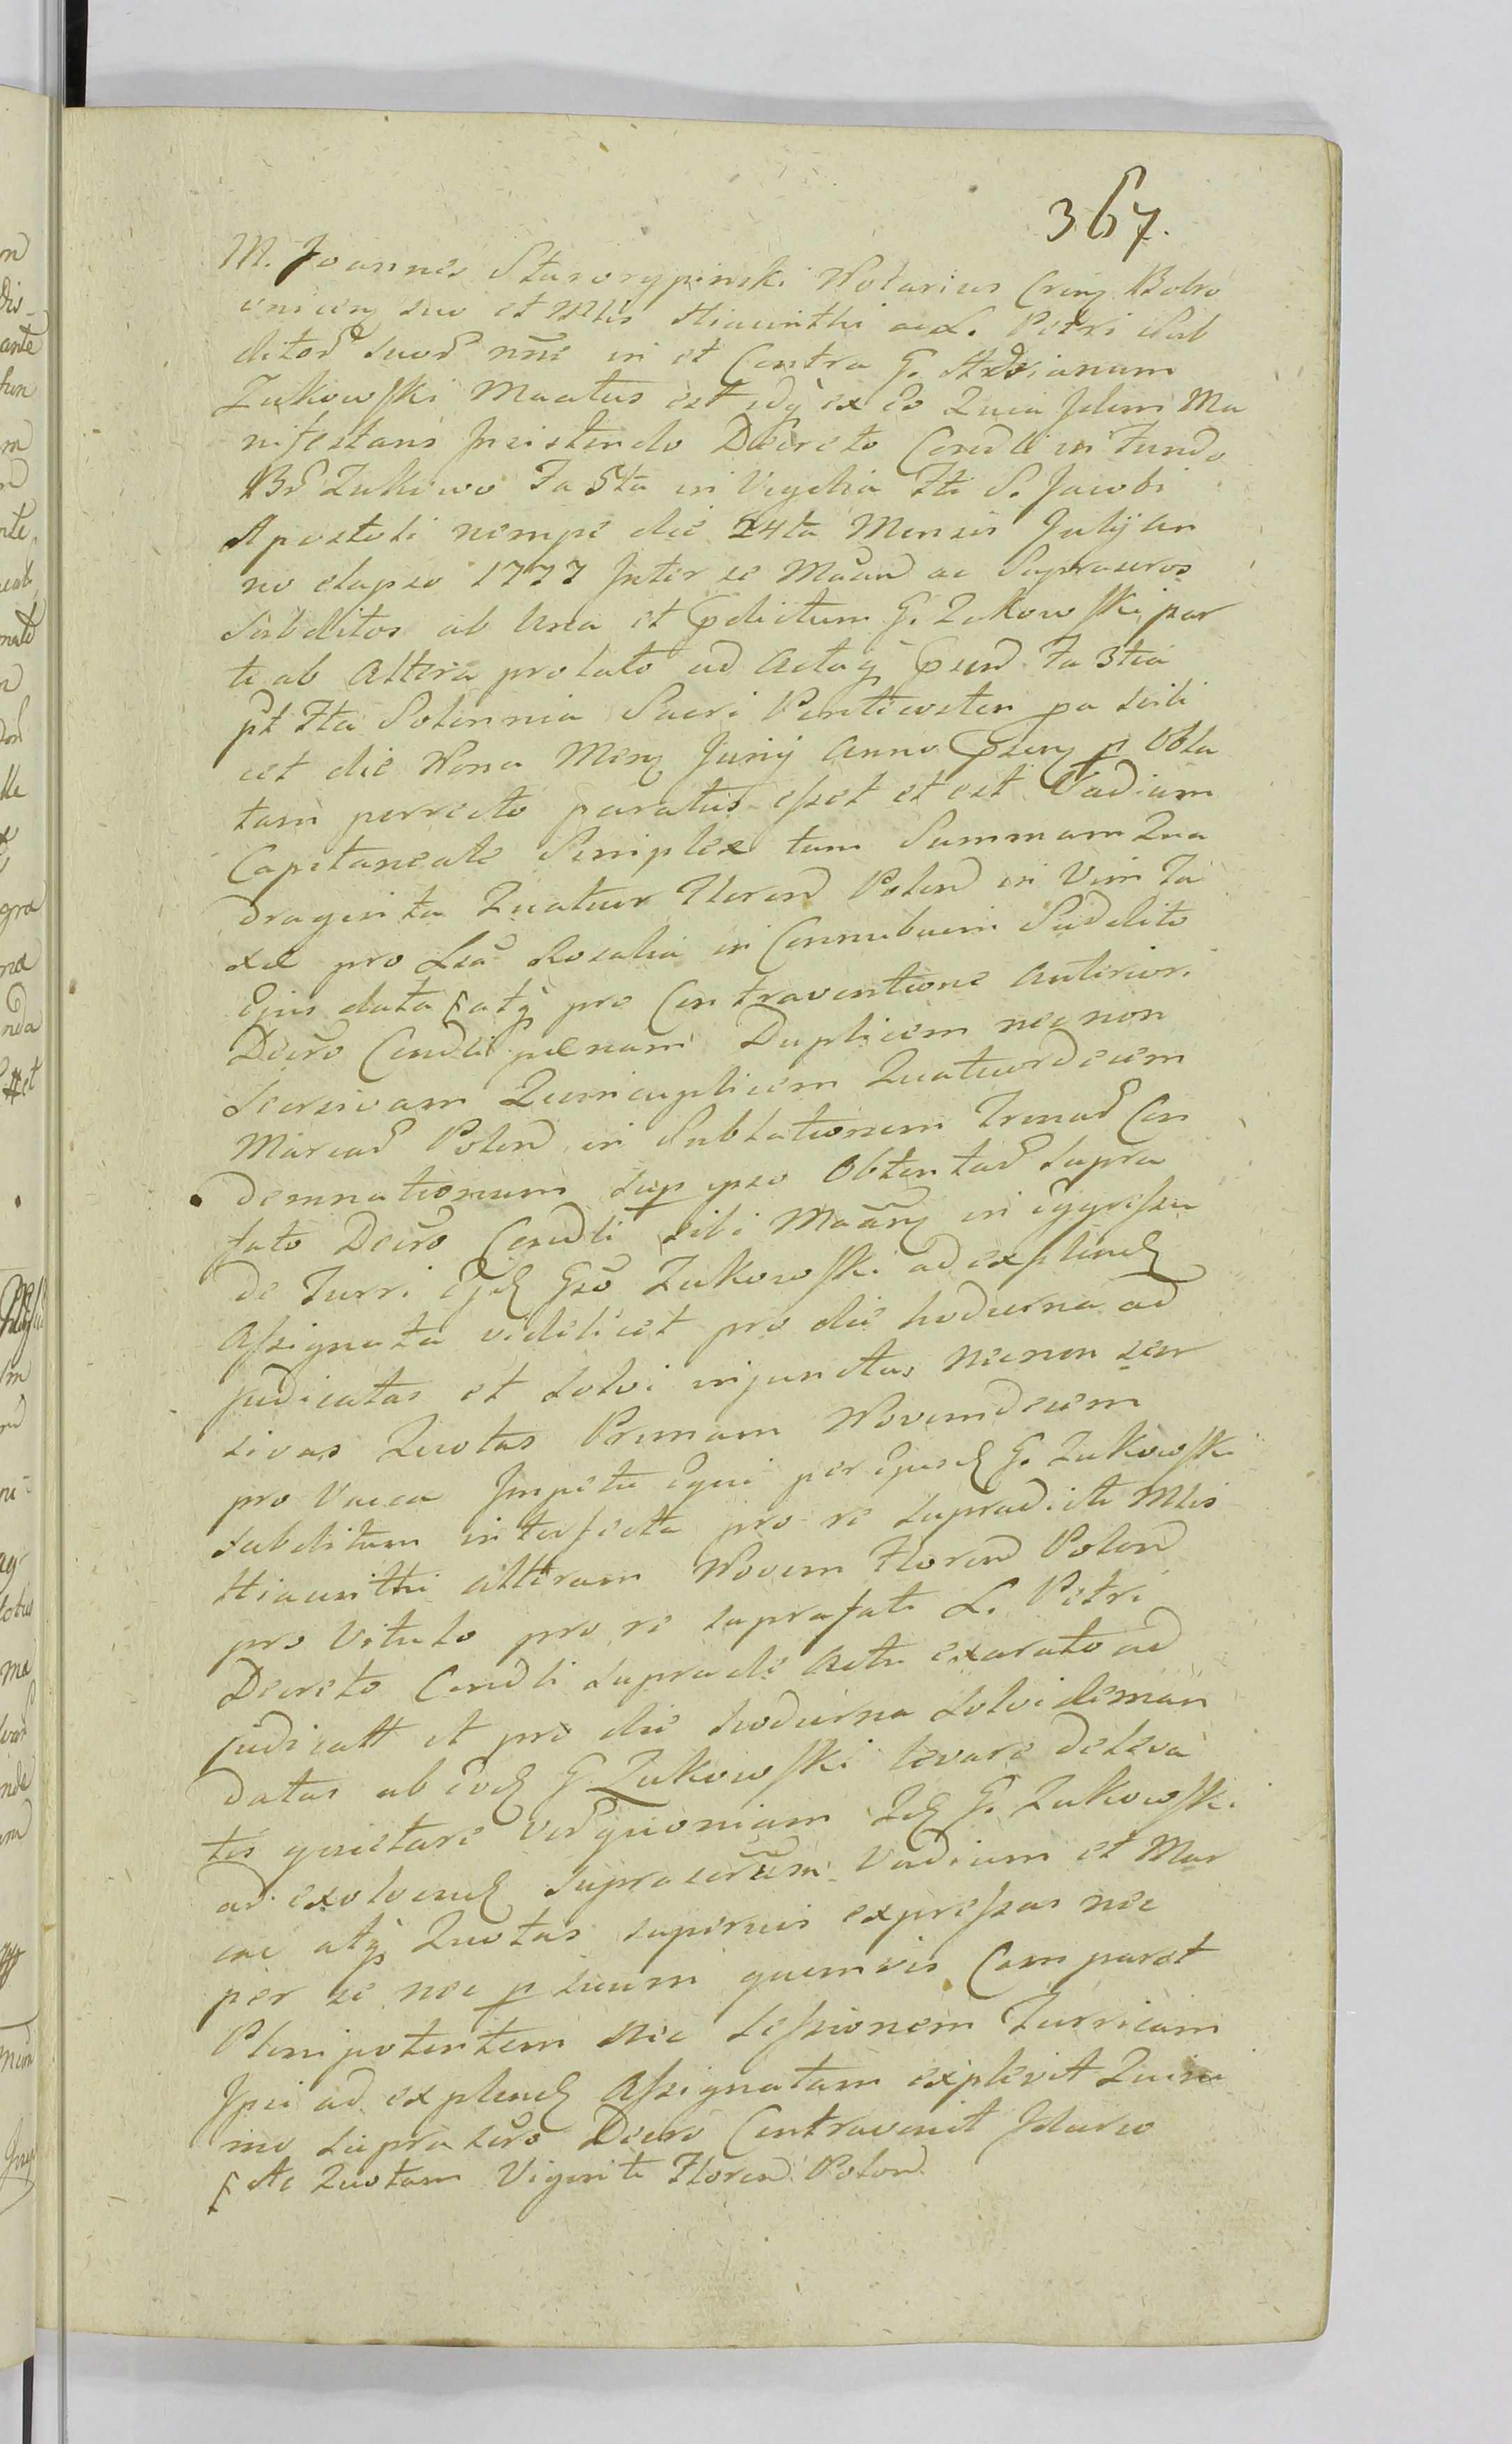 367.
M. Joannes Starorypinski Notarius Crens Bobro
vnicens suo et Mtis Hiacinthi ac L. Petri Sub
ditor suor nne in et Contra G. Adrianum
Zukowski Maatus est idq ex eo Quia Idem Ma
nifestans Insistendo Decreto Condli in Fundo
Br Zukowo Fa 5ta in Vigilia Fti S. Jacobi
Apostoli nempe die 24ta Mensis Julij an
no elapso 1777 Inter se Maand ac Suprascros
Subditos ab Una et pdictum G. Zukowski par
te ab Altera prolato ad Actaq psend Fa 3tia
pt Fta Solennia Sacri Pentecosten pa scili
cet die Nona Mens Junij Anno psens p Obla
tam porrecto paratus esset et est Vadium
Capitaneale Simplex tum Summam Qua
draginta Quatuor Floren Polon in Vim Ta
xae pro Lsa Rosalia in Connubium Subdito
Ejus data atq pro Contraventione Anteriori
Decro Condli paenam Duplicem necnon
Seorsivam Quincuplicem Quatuordecem
Marcar Polon in Sublationem Trinar Con
demnationum sup ipso Obtentar supra
fato Decro Condli sibi Maans in Egressu
de Turri Ejd Gso Zukowski ad explend
Assignata videlicet pro die hodierna ad
judicatas et solvi injunctas necnon seor
sivas Quotas Primam Novemdecem
pro Vacca Impetu Equi per Ejusd G. Zukowski
subditum interfecta pro re supradicti Mtis
Hiacinthi Alteram Novem Floren Polon
pro Vitulo pro re suprafati L. Petri
Decreto Condli supra de Actu exarato ad
judicatt et pro die hodierna solvi deman
datas ab eod G Zukowski levare deleva
tis quietare Ver quoniam Id G. Zukowski
ad exolvend suprascrum Vadium et Mar
cae atq Quotas superius expressas nec
per se nec p suum quemvis Comparet
Plenipotentem Nec sessionem Turricam
Ipsi ad explend Assignatam explevit Quini
mo suprascro Decro Contravenit Ideirco
Ac Quotam Viginti Floren Polon